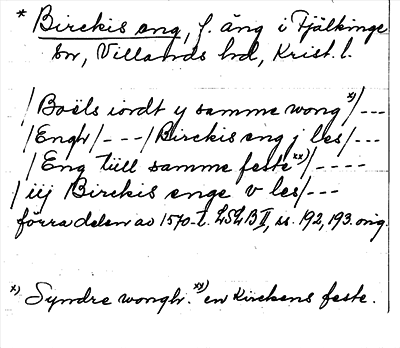 * Birckis eng, f. äng i Fjälkinge
sn, Villands hd, Krist. l.
/Boëls iordt y samme wong x)/---
/Engh/---/Birckis eng j les/---
/Eng tüll samme feste xx)/----
/iij Birckis enge v les/---
förra delen av 1570-t. LSLB II, ss. 192, 193. orig.
x) Syndre wongh. xx) en Kirckens feste.